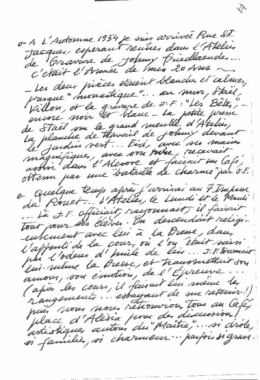 o - A L'Automne 1954 je suis arrivée Rue St.
Jacques, espérant rentrer dans l'Atelier
de Gravure de Johnny Friedlaender.
C'était l'Année de mes 20 Ans -
- Les deux pièces étaient blanches et calmes,
presque "monastique"... au mur, Staël,
Villon, et la gravure de J.F: "Les Bêtes",
encore noir et blanc - La petite presse
de Staël ou le grand meuble d'Atelier,
la planche de travail de Johnny devant
le jardin vert... avec ses mains
magnifiques, avec son recevait
assis dans l'Alcove et faisait un café,
obtenu par une bataille de charme par J.F.
o Quelque temps après j'arrivai au 7 Impasse
du Rouet... l'Atelier, le Lundi et le Mardi
... Là J.F. officiait, rayonnait, il faisait
tout pour ses élèves. On descendait
avec lui à la Presse, dans
l'appentis de la cour, où l'on était saisi
par l'odeur d'huile de lin... J.F. tournait
lui-même la Presse, et transmettait son
amour, son émotion, de l'Épreuve...
(après les cours, il faisait lui-même les
rangements... essayant de me retenir!)
puis nous nous retrouvions tous au Café,
place d'Alésia pour des discussions
artistiques autour du "Maître"... si drôle,
si familier, si charmeur... parfois si grave.